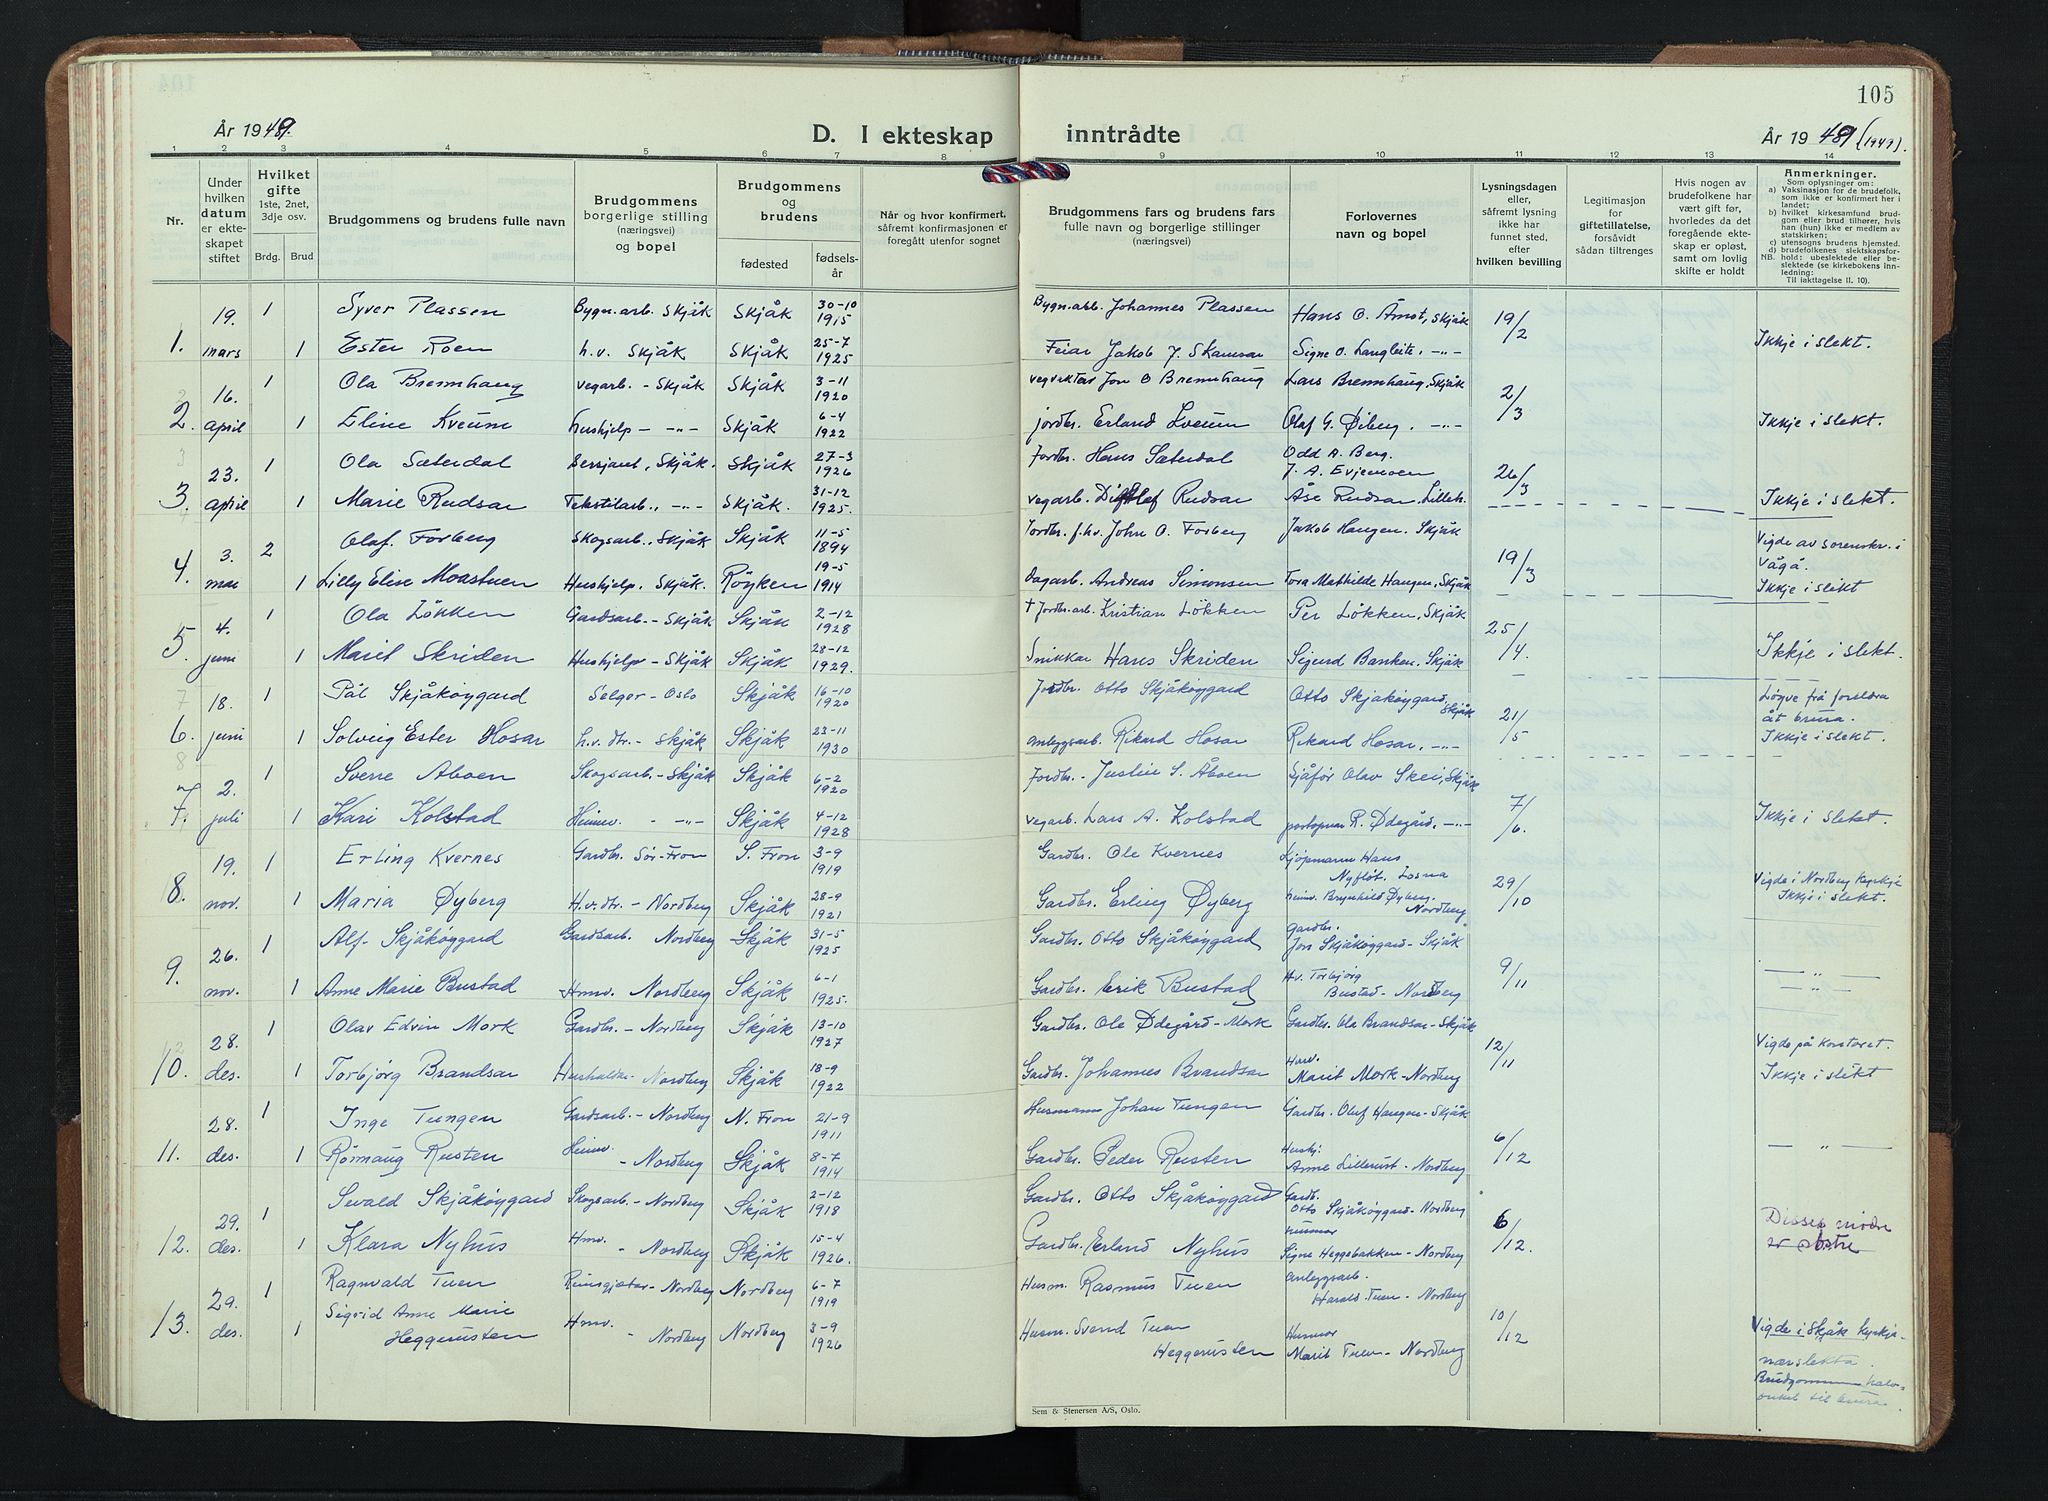 105
År 1949.
D. I ekteskap inntrådte
År 1949 (1949).
1 2 3 4 5 6 7 8 9 10 11 12 13 14
Nr.
Under hvilken datum er ekteskapet stiftet
Hvilket gifte 1ste, 2net, 3dje osv.
Brdg. Brud
Brudgommens og brudens fulle navn
Brudgommens borgerlige stilling (næringsvei) og bopel
Brudgommens og brudens
fødested
fødselsår
Når og hvor konfirmert, såfremt konfirmasjonen er foregått utenfor sognet
Brudgommens fars og brudens fars fulle navn og borgerlige stillinger (næringsvei)
Forlovernes navn og bopel
Lysningsdagen eller, såfremt lysning ikke har funnet sted, efter hvilken bevilling
Legitimasjon for giftetillatelse, forsåvidt sådan tiltrenges
Hvis nogen av brudefolkene har vært gift før, hvorledes da det foregående ekteskap er opløst, samt om lovlig skifte er holdt
Anmerkninger.
Som oplysninger om:
a) Vaksinasjon for de brudefolk, som ikke er konfirmert her i landet;
b) hvilket kirkesamfund brudgom eller brud tilhører, hvis han (hun) ikke er medlem av statskirken;
c) utensogns brudens hjemsted.
d) brudefolkenes slektskapsforhold: ubeslektede eller beslektede (se kirkebokens innledning:
NB. Til iakttagelse II. 10).
1. 19. mars 1 Syver Plassen Bygn.arb. Skjåk Skjåk 30-10 1915 Bygn.arb. Johannes Plassen Hans O. Åmot, Skjåk 19/2
1 Ester Roen h.v. Skjåk Skjåk 25-7 1925 Feiar Jakob J. Skamsar Signe O. Langleite. -"- Ikkje i slekt.
2. 16. april 1 Ola Bremhaug vegarb. - Skjåk Skjåk 3-11 1920 vegvakter Jon O Bremhaug Lars Bremhaug, Skjåk 2/3
1 Eline Kveum hushjelp - -"- Skjåk 6-4 1922 jordbr. Erland Kveum Olaf G. Øiberg. -"- Ikkje i slekt.
3. 23. april 1 Ola Sæterdal Sersjant, Skjåk. Skjåk 27-3 1926 Jordbr. Hans Sæterdal Odd A. Berg. J. A. Evjemoen 26/3
1 Marie Rudsar Tekstilarb., -"- Skjåk. 31-12 1925. vegarb. Rudsar Åse Rudsar, Lilleh. Ikkje i slekt.
4. 3. mai 2 Olaf. Forberg Skogsarb., Skjåk Skjåk 11-5 1894 Jordbr. f.hv. John O. Forberg Jakob Haugen. Skjåk 19/3 Vigde av sorenskr. i Vågå.
1 Lilly Elise Moastuen Hushjelp, Skjåk. Røyken 19-5 1914 Dagarb. Andreas Simonsen Tora Mathilde Haugen, Skjåk Ikkje i slekt
5. 4. juni 1 Ola Løkken Gardsarb. - Skjåk Skjåk 2-12 1928 † Jordbr.arb. Kristian Løkken Per Løkken, Skjåk 25/4.
1 Marit Skriden Hushjelp - Skjåk Skjåk 28-12 1929. Snikkar Hans Skriden Sigurd Banken, Skjåk Ikkje i slekt.
6. 18. juni 1 Pål Skjåkøygard Selger - Oslo Skjåk 16-10 1920 Jordbr. Otto Skjåkøygard Otto Skjåkøygard, Skjåk 21/5 Løyve frå foreldra åt brura.
1 Solveig Ester Hosar h.v. dtr. - Skjåk Skjåk 23-11 1930 anleggsarb. Rikard Hosar Rikard Hosar, -"- Ikkje i slekt.
7. 2. juli 1 Sverre Aboen Skogsarb. - Skjåk Skjåk 6-2 1920 Jordbr. - Justin S. Åboen Sjåfør Olav Skei, Skjåk 7/6.
1 Kari Kolstad Heimev. - -"- Skjåk 4-12 1928 vegarb. Lars A. Kolstad postopnar R. Ødegård. -"- Ikkje i slekt.
8. 19. nov. 1 Erling Kvernes Gardbr. Sør-Fron S. Fron 3-9 1919 Gardbr. Ole Kvernes Kjøpmann Hans Nyfløt, Losna 29/10 Vigde i Nordberg kyrkje
1 Maria Øyberg H.v. dtr. - Nordberg Skjåk 28-9 1921 Gardbr. Erling Øyberg heimv. Brynhild Øyberg. Nordberg Ikkje i slekt.
9. 26. nov. 1 Alf. Skjåkøygard Gardsarb. Nordberg Skjåk 31-5 1925 Gardbr. Otto Skjåkøygard gardbr. Jon Skjåkøygard - Skjåk 9/11 -"-
1 Anne Marie Bustad Hmv. Nordberg Skjåk 6-1 1925. Gardbr. Erik Bustad Hv. Torbjørg Bustad - Nordberg -"-
10. 28. des. 1 Olav Edvin Mork Gardbr. - Nordberg Skjåk 13-10 1927 Gardbr. Ole Ødegård - Mork Gardbr. Ola Brandsar - Skjåk 12/11 Vigde på kontoret.
1 Torbjørg Brandsar Hushaldn. - Nordberg Skjåk 18-9 1922 Gardbr. Johannes Brandsar Husv. Marit Mork - Nordberg Ikkje i slekt
11. 28. des. 1 Inge Tungen Gardsarb. - Nordberg N. Fron 21-9 1911 Husmann Johan Tungen Gardbr. Oluf Haugen - Skjåk 6/12
1 Rømaug Rusten Heimv. - Nordberg Skjåk 8-7 1914 Gardbr. Peder Rusten Hushj: Anne Lillerust - Nordberg -"-
12. 29. des. 1 Sevald Skjåkøygard Skogsarb. - Nordberg Skjåk 2-12 1918 Gardbr. Otto Skjåkøygard Gardb. Otto Skjåkøygard - Nordberg 6/12.
1 Klara Nyhus Hmv. - Nordberg Skjåk 15-4 1926. Gardbr. Erland Nyhus husmor Signe Heggebakken - Nordberg Disses mødre er søstre
13. 29. des. 1 Ragnvald Tuen Reinsgjeter - Nordberg Nordberg 6-7 1919 Husm. Rasmus Tuen anleggsarb. Harald Tuen - Nordberg 10/12
1 Sigrid Anne Marie Heggerusten Hmv. - Nordberg Nordberg 3-9 1926 Husm. Svend Tuen Heggerusten Husmor Marit Tuen - Nordberg Vigde i Skjåk kyrkja - nærslekta. Brudgommen halvonkel til brura.
Sem & Stenersen A/S, Oslo.